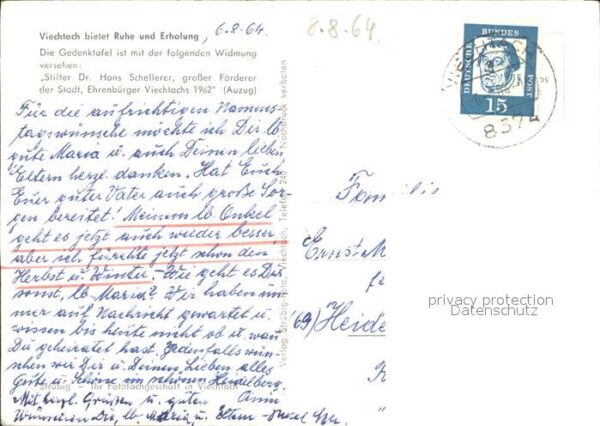 Viechtach bietet Ruhe und Erholung, 6.8.64
8.8.64
Die Gedenktafel ist mit der folgenden Widmung
versehen:
„Stifter Dr. Hans Schellerer, großer Förderer
der Stadt, Ehrenbürger Viechtachs 1962“ (Auzug)
Für die aufrichtigen Namens-
tagswünsche möchte ich Dir lb.
gute Maria u. auch Deinen lieben
Eltern herzl. danken. Hat Euch
Euer guter Vater auch große Sor-
gen bereitet! Meinem lb. Onkel
geht es jetzt auch wieder besser
aber ich fürchte jetzt schon den
Herbst u. Winter. - Wie geht es Dir
sonst, lb. Maria? Wir haben im-
mer auf Nachricht gewartet u.
wissen bis heute nicht ob u. wann
Du geheiratet hast. Jedenfalls wün-
schen wir Dir u. Deinem Lieben alles
Gute u. Schöne im schönen Heidelberg.
Mit herzl. Grüßen u. guten
Wünschen Dir, lb. Maria u. Eltern
Ströbig - Ihr Fotofachgeschäft in Viechtach
Nachdruck verboten
DEUTSCHE BUNDES POST
15
8374
Familie
Ernst M
(69) Heide
privacy protection
Datenschutz